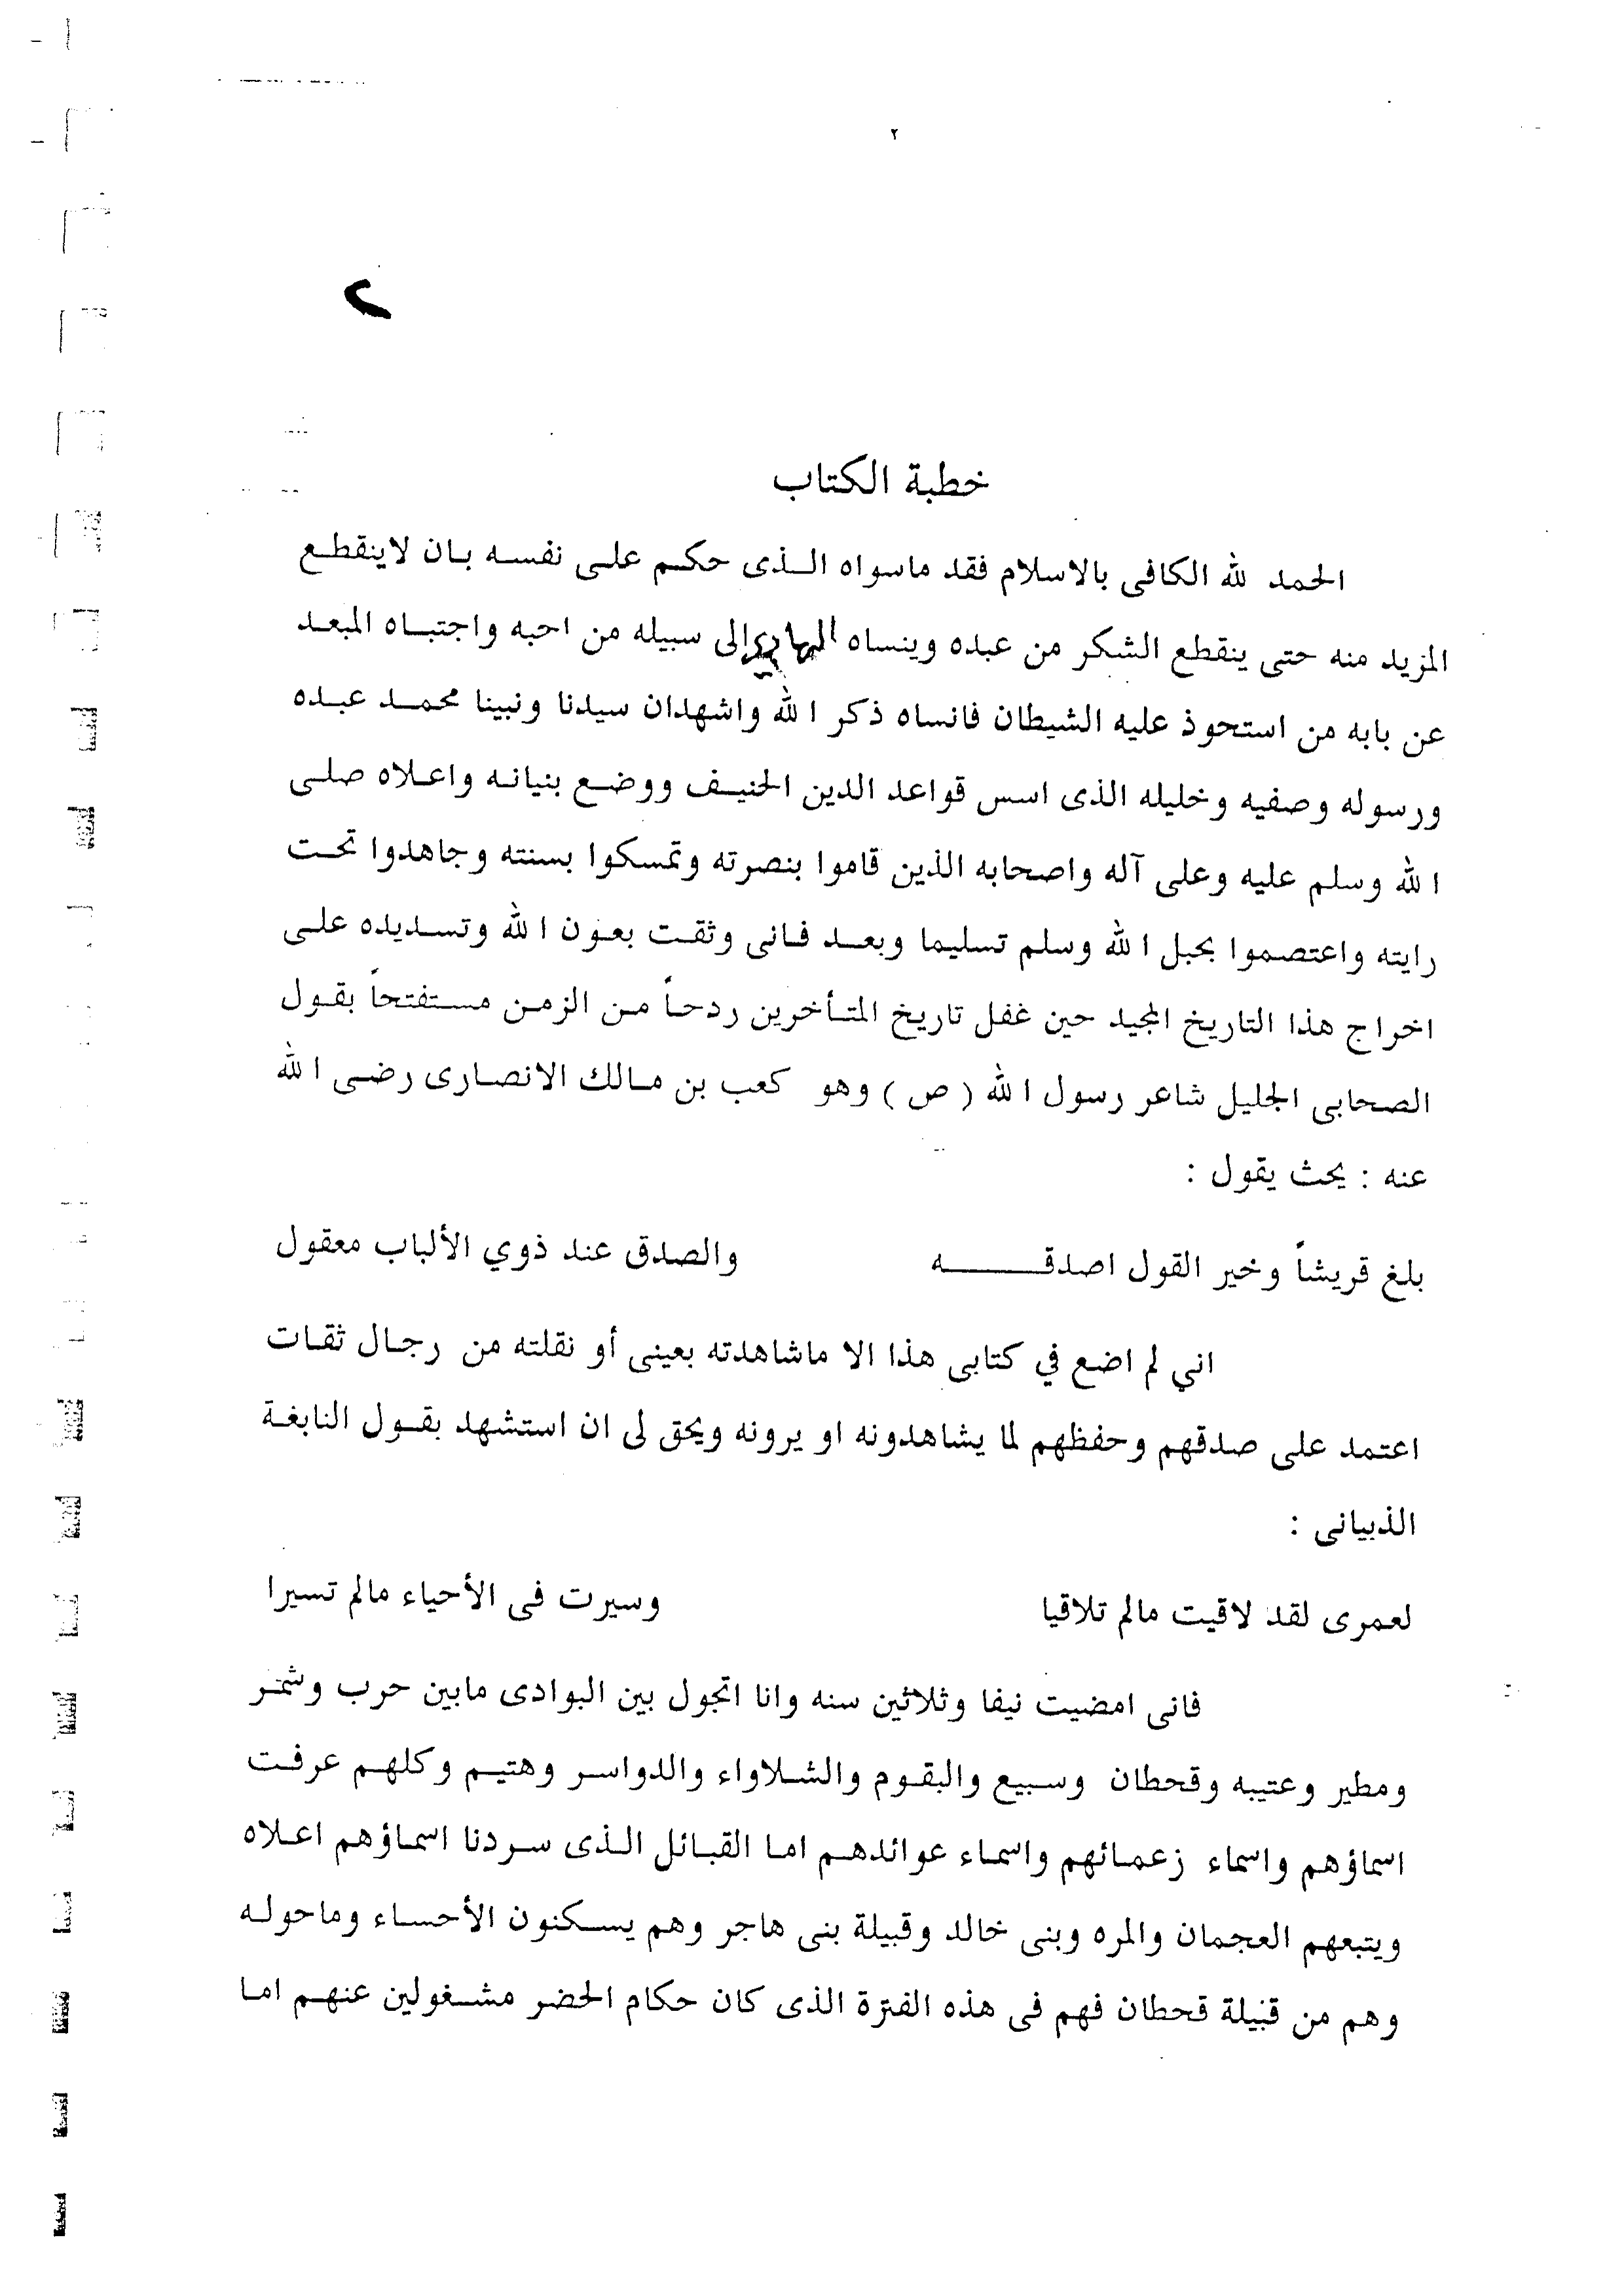 ٢
٢
خطبة الكتاب
الحمد لله الكافى بالاسلام فقد ماسواه الذى حكم على نفسه بان لاينقطع
المزيد منه حتى ينقطع الشكر من عبده وينساه الهادي إلى سبيله من احبه واجتباه المبعد
عن بابه من استحوذ عليه الشيطان فانساه ذكر الله واشهدان سيدنا ونبينا محمد عبده
ورسوله وصفيه وخليله الذى اسس قواعد الدين الحنيف ووضع بنيانه واعلاه صلى
الله وسلم عليه وعلى آله واصحابه الذين قاموا بنصرته وتمسكوا بسنته وجاهدوا تحت
رايته واعتصموا بحبل الله وسلم تسليما وبعد فانى وثقت بعون الله وتسديده على
اخراج هذا التاريخ المجيد حين غفل تاريخ المتأخرين ردحاً من الزمن مستفتحاً بقول
الصحابى الجليل شاعر رسول الله ( ص ) وهو كعب بن مالك الانصارى رضى الله
عنه : يحث يقول :
بلغ قريشاً وخير القول اصدقه والصدق عند ذوي الألباب معقول
اني لم اضع في كتابى هذا الا ماشاهدته بعينى أو نقلته من رجال ثقات
اعتمد على صدقهم وحفظهم لما يشاهدونه او يرونه ويحق لى ان استشهد بقول النابغة
الذبيانى :
لعمرى لقد لاقيت مالم تلاقيا وسيرت فى الأحياء مالم تسيرا
فانى امضيت نيفا وثلاثين سنه وانا اتجول بين البوادى مابين حرب وشمر
ومطير وعتيبه وقحطان وسبيع والبقوم والشلاواء والدواسر وهتيم وكلهم عرفت
اسماؤهم واسماء زعمائهم واسماء عوائدهم اما القبائل الذى سردنا اسماؤهم اعلاه
ويتبعهم العجمان والمره وبنى خالد وقبيلة بنى هاجر وهم يسكنون الأحساء وماحوله
وهم من قبيلة قحطان فهم فى هذه الفترة الذى كان حكام الحضر مشغولين عنهم اما